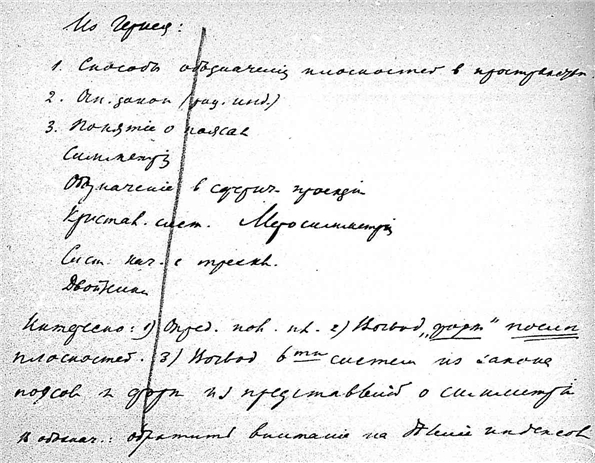 Из Гернея:
1. Способы обозначенія плоскостей в пространстве.
2. Осн. закон (рац. инд.)
3. Понятіе о поясах
Симметрія
Обозначеніе в сферич. проекціи
Кристал. сист. Меросимметрія
Сист. нач. с трехкл.
Двойники
Интересно: 1) Опред. пов. пл. 2) Вывод „форм“ после
плоскостей. 3) Вывод 6ти систем из закона
поясов и форм из представленій о симметріи
В обознач.: обратить вниманіе на дѣленіе индексов